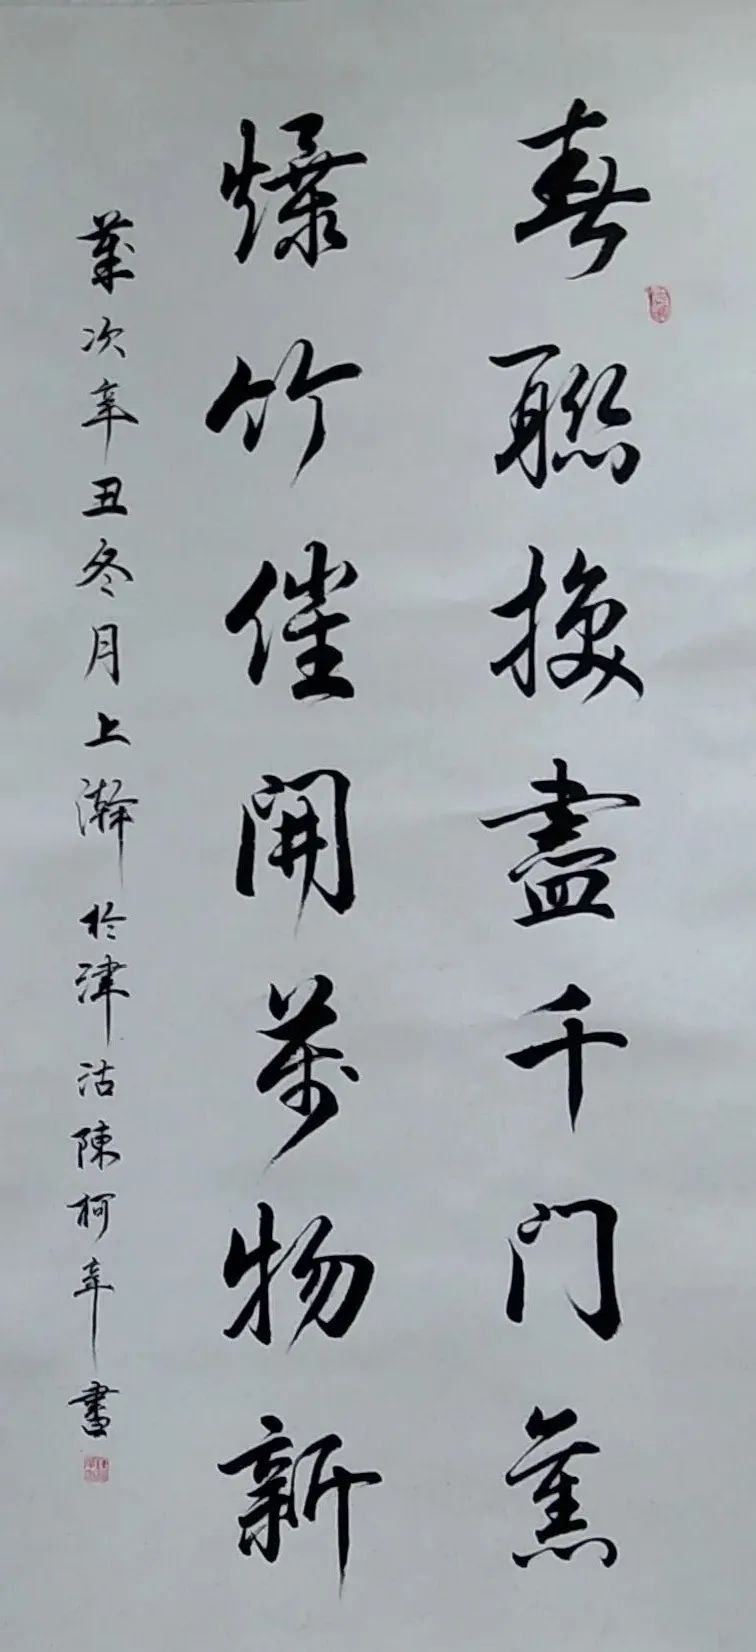 春聯換盡千門舊
爆竹催開萬物新
歲次辛丑冬月上澣於津沽陳柯書